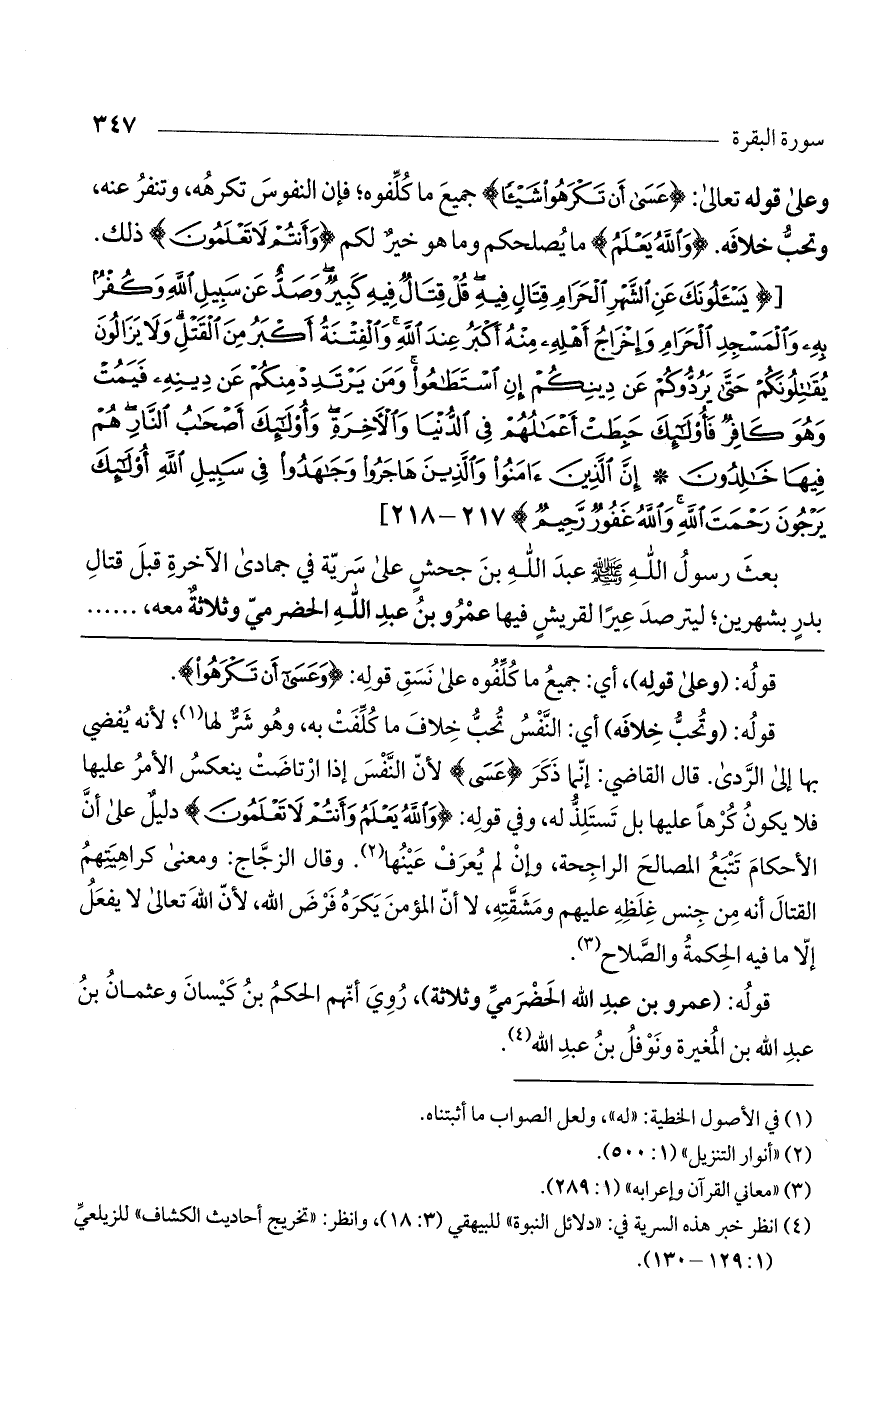 سورة البقرة ٣٤٧
وعلىٰ قوله تعالىٰ: ﴿عَسَىٰ أَن تَكْرَهُوا۟ شَيْـًٔا﴾ جميعَ ما كُلِّفوه؛ فإن النفوسَ تكرهُه، وتنفرُ عنه،
وتحبُّ خلافَه. ﴿وَٱللَّهُ يَعْلَمُ﴾ ما يُصلحكم وما هو خيرٌ لكم ﴿وَأَنتُمْ لَا تَعْلَمُونَ﴾ ذلك.
[﴿يَسْـَٔلُونَكَ عَنِ ٱلشَّهْرِ ٱلْحَرَامِ قِتَالٍ فِيهِ ۖ قُلْ قِتَالٌ فِيهِ كَبِيرٌ ۖ وَصَدٌّ عَن سَبِيلِ ٱللَّهِ وَكُفْرٌۢ
بِهِۦ وَٱلْمَسْجِدِ ٱلْحَرَامِ وَإِخْرَاجُ أَهْلِهِۦ مِنْهُ أَكْبَرُ عِندَ ٱللَّهِ ۚ وَٱلْفِتْنَةُ أَكْبَرُ مِنَ ٱلْقَتْلِ ۗ وَلَا يَزَالُونَ
يُقَـٰتِلُونَكُمْ حَتَّىٰ يَرُدُّوكُمْ عَن دِينِكُمْ إِنِ ٱسْتَطَـٰعُوا۟ ۚ وَمَن يَرْتَدِدْ مِنكُمْ عَن دِينِهِۦ فَيَمُتْ
وَهُوَ كَافِرٌ فَأُو۟لَـٰٓئِكَ حَبِطَتْ أَعْمَـٰلُهُمْ فِى ٱلدُّنْيَا وَٱلْـَٔاخِرَةِ ۖ وَأُو۟لَـٰٓئِكَ أَصْحَـٰبُ ٱلنَّارِ ۖ هُمْ
فِيهَا خَـٰلِدُونَ * إِنَّ ٱلَّذِينَ ءَامَنُوا۟ وَٱلَّذِينَ هَاجَرُوا۟ وَجَـٰهَدُوا۟ فِى سَبِيلِ ٱللَّهِ أُو۟لَـٰٓئِكَ
يَرْجُونَ رَحْمَتَ ٱللَّهِ ۚ وَٱللَّهُ غَفُورٌ رَّحِيمٌ﴾ ٢١٧ – ٢١٨]
بعثَ رسولُ اللهِ ﷺ عبدَ اللهِ بنَ جحشٍ علىٰ سَريّة في جمادىٰ الآخرةِ قبلَ قتالِ
بدرٍ بشهرين؛ ليترصدَ عِيرًا لقريشٍ فيها عمْرُو بنُ عبدِ اللهِ الحضرميّ وثلاثةٌ معه، ......
قولُه: (وعلىٰ قوله)، أي: جميعُ ما كُلِّفُوه علىٰ نَسَقِ قولِه: ﴿وَعَسَىٰٓ أَن تَكْرَهُوا۟﴾.
قولُه: (وتُحبُّ خِلافَه) أي: النَّفْسُ تُحبُّ خِلافَ ما كُلِّفَتْ به، وهُو شَرٌّ لها(١)؛ لأنه يُفضي
بها إلىٰ الرَّدىٰ. قال القاضي: إنّما ذَكَرَ ﴿عَسَى﴾ لأنّ النَّفْسَ إذا ارْتاضَتْ ينعكسُ الأمرُ عليها
فلا يكونُ كُرْهاً عليها بل تَستَلِذُّ له، وفي قولِه: ﴿وَٱللَّهُ يَعْلَمُ وَأَنتُمْ لَا تَعْلَمُونَ﴾ دليلٌ علىٰ أنَّ
الأحكامَ تَتْبَعُ المصالحَ الراجحة، وإنْ لم يُعرَفْ عَيْنُها(٢). وقال الزجَّاج: ومعنىٰ كراهيَتِهمُ
القتالَ أنه مِن جِنس غِلَظِه عليهم ومَشَقَّتِهِ، لا أنّ المؤمنَ يَكرَهُ فَرْضَ الله، لأنّ اللهَ تعالىٰ لا يفعَلُ
إلّا ما فيه الحِكمةُ والصَّلاح(٣).
قولُه: (عمرو بن عبدِ الله الحَضْرَميِّ وثلاثة)، رُوِيَ أنّهم الحكمُ بنُ كَيْسانَ وعثمانُ بنُ
عبدِ الله بن المُغيرة ونَوْفلُ بنُ عبدِ الله(٤).
(١) في الأصول الخطية: «له»، ولعل الصواب ما أثبتناه.
(٢) «أنوار التنزيل» (١: ٥٠٠).
(٣) «معاني القرآن وإعرابه» (١: ٢٨٩).
(٤) انظر خبر هذه السرية في: «دلائل النبوة» للبيهقي (٣: ١٨)، وانظر: «تخريج أحاديث الكشاف» للزيلعيِّ
(١: ١٢٩ – ١٣٠).